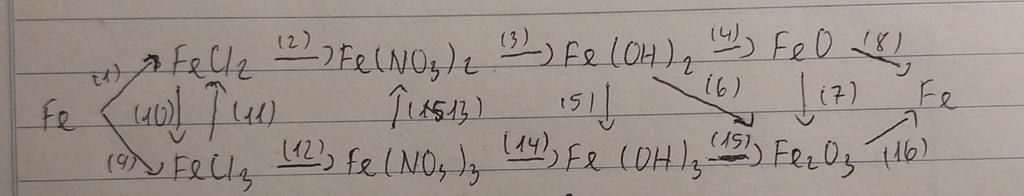 (1) FeCl₂ (2)→ Fe(NO₃)₂ (3)→ Fe(OH)₂ (4)→ FeO (8)
Fe (10)↓ ↑(11) ↑(13) (5)↓ (6) ↓(7) Fe
(9) FeCl₃ (12)→ Fe(NO₃)₃ (14)→ Fe(OH)₃ (15)→ Fe₂O₃ (16)